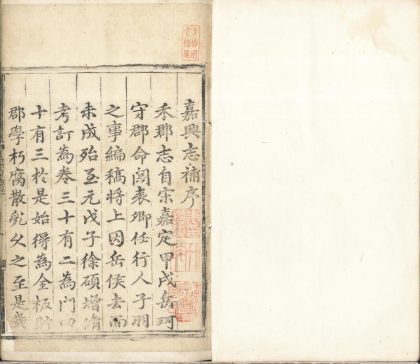 嘉興志補序
禾郡志自宋嘉定甲戌岳珂
守郡命關表卿任行人子羽
之事編稿將上因岳侯去而
未成殆至元戊子徐碩增
考訂為卷三十有二為門四
十有三於是始得為全板貯
郡學朽腐散乱久之至是